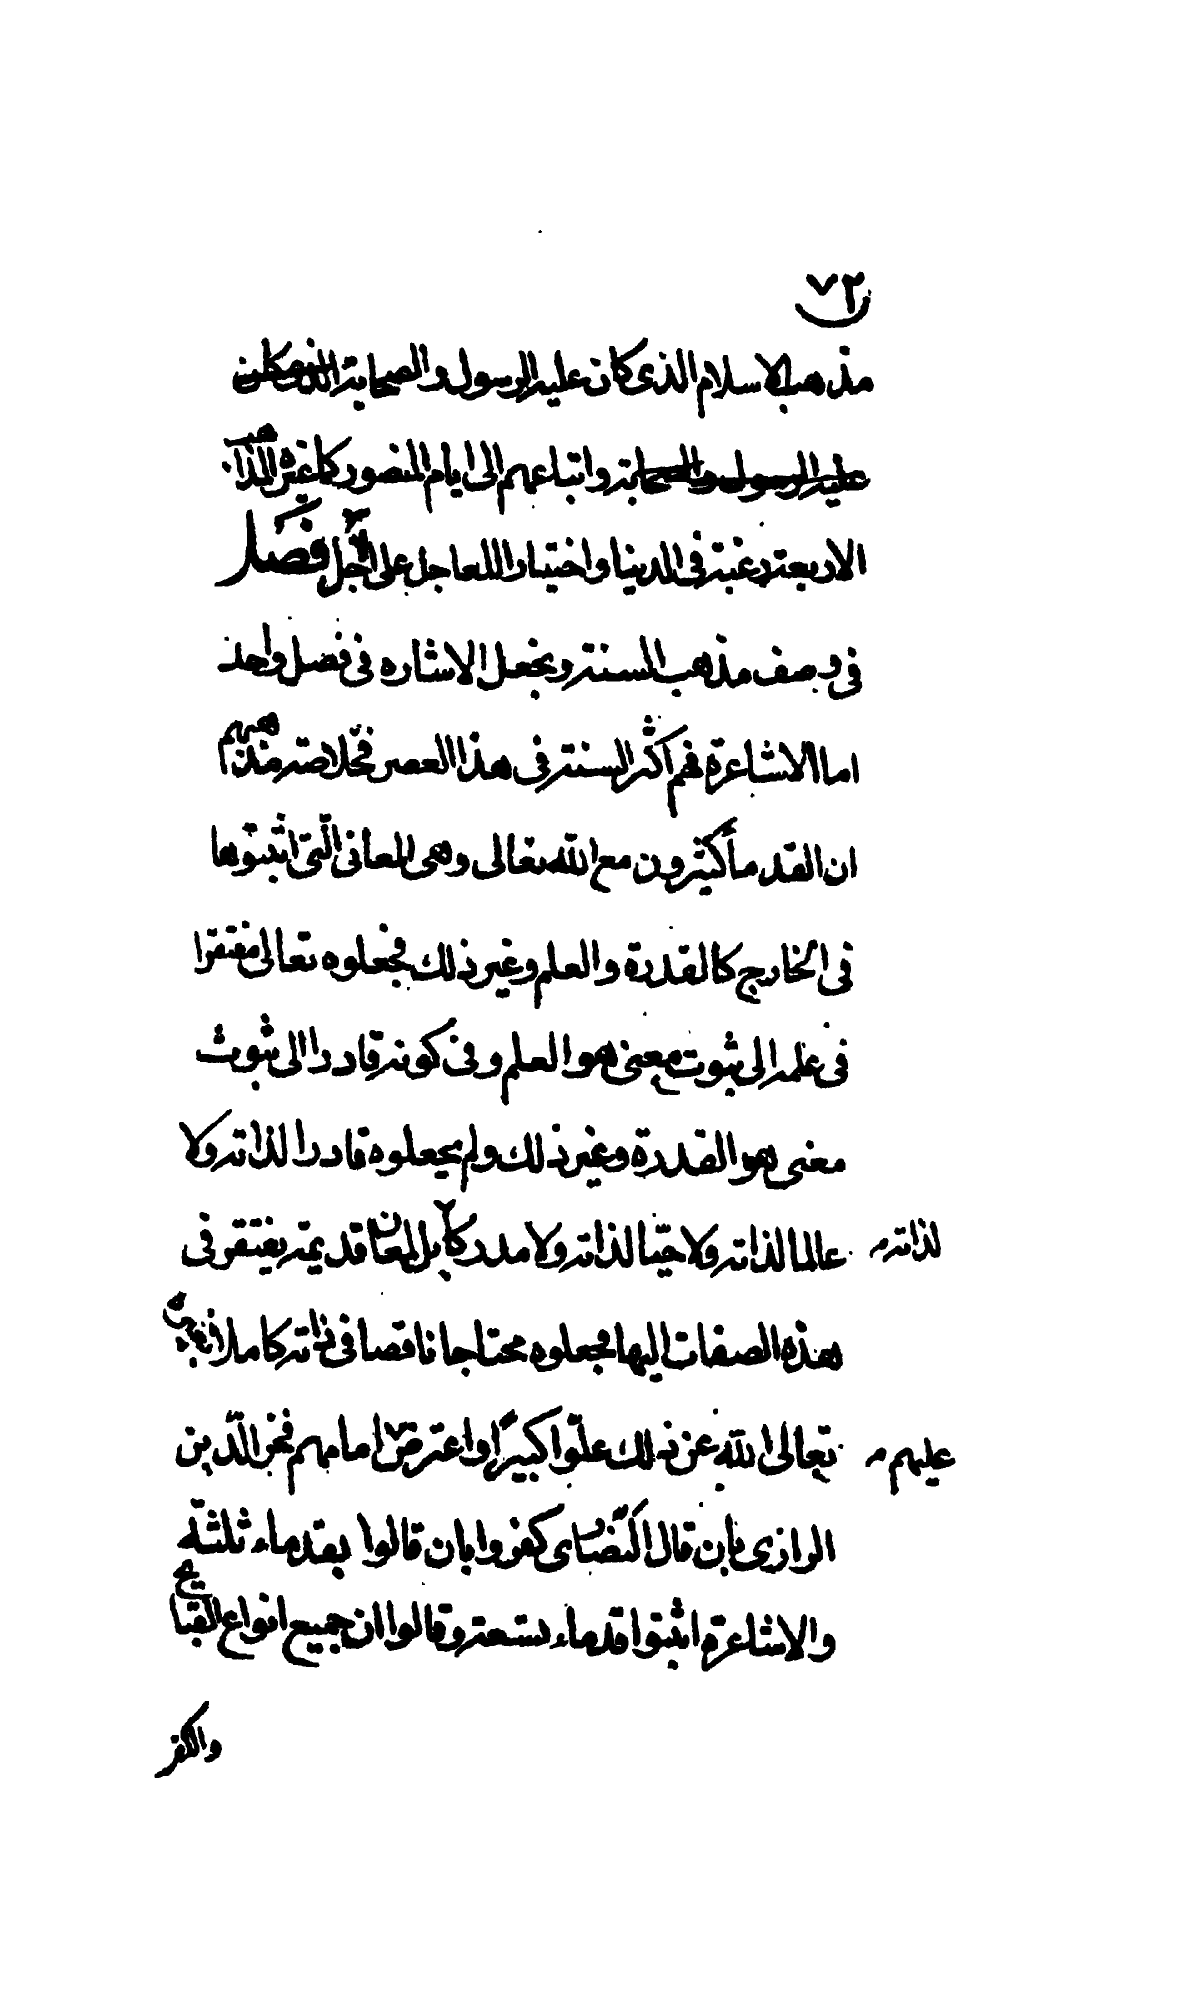 ٧٢
مذهب الاسلام الذى كان عليه الرسول والصحابة الذى كان
عليه الرسول والصحابة واتباعهم الى ايام المنصور كما غيّر المذاهب
الاربعة رغبة فى الدنيا واختيارا للعاجل على اجل فصل
فى وصف مذهب السنة ونجعل الاشاره فى فصل واحد
اما الاشاعرة فهم اكثر السنة فى هذا العصر فخلاصة مذهبهم
ان القدماء كثيرون مع الله تعالى وهى المعانى الّتى اثبتوها
فى الخارج كالقدرة والعلم وغير ذلك فجعلوه تعالى مفتقرا
فى علمه الى ثبوت معنى هو العلم وفى كونه قادرا الى ثبوت
معنى هو القدرة وغير ذلك ولم يجعلوه قادرا لذاته ولا
لذاته م
عالما لذاته ولا حيّا لذاته ولا مدركا بل لمعان قديمة يفتقر فى
هذه الصفات اليها فجعلوه محتاجا ناقصا فى ذاته كاملا بغيره
عليهم م
تعالى الله عن ذلك علوّا كبيرًا واعترض امامهم فخر الدّين
الرازى بأن قال النّصارى كفروا بان قالوا بقدماء ثلثة
والاشاعرة اثبتوا قدماء تسعة وقالوا ان جميع انواع القبايح
والكفر